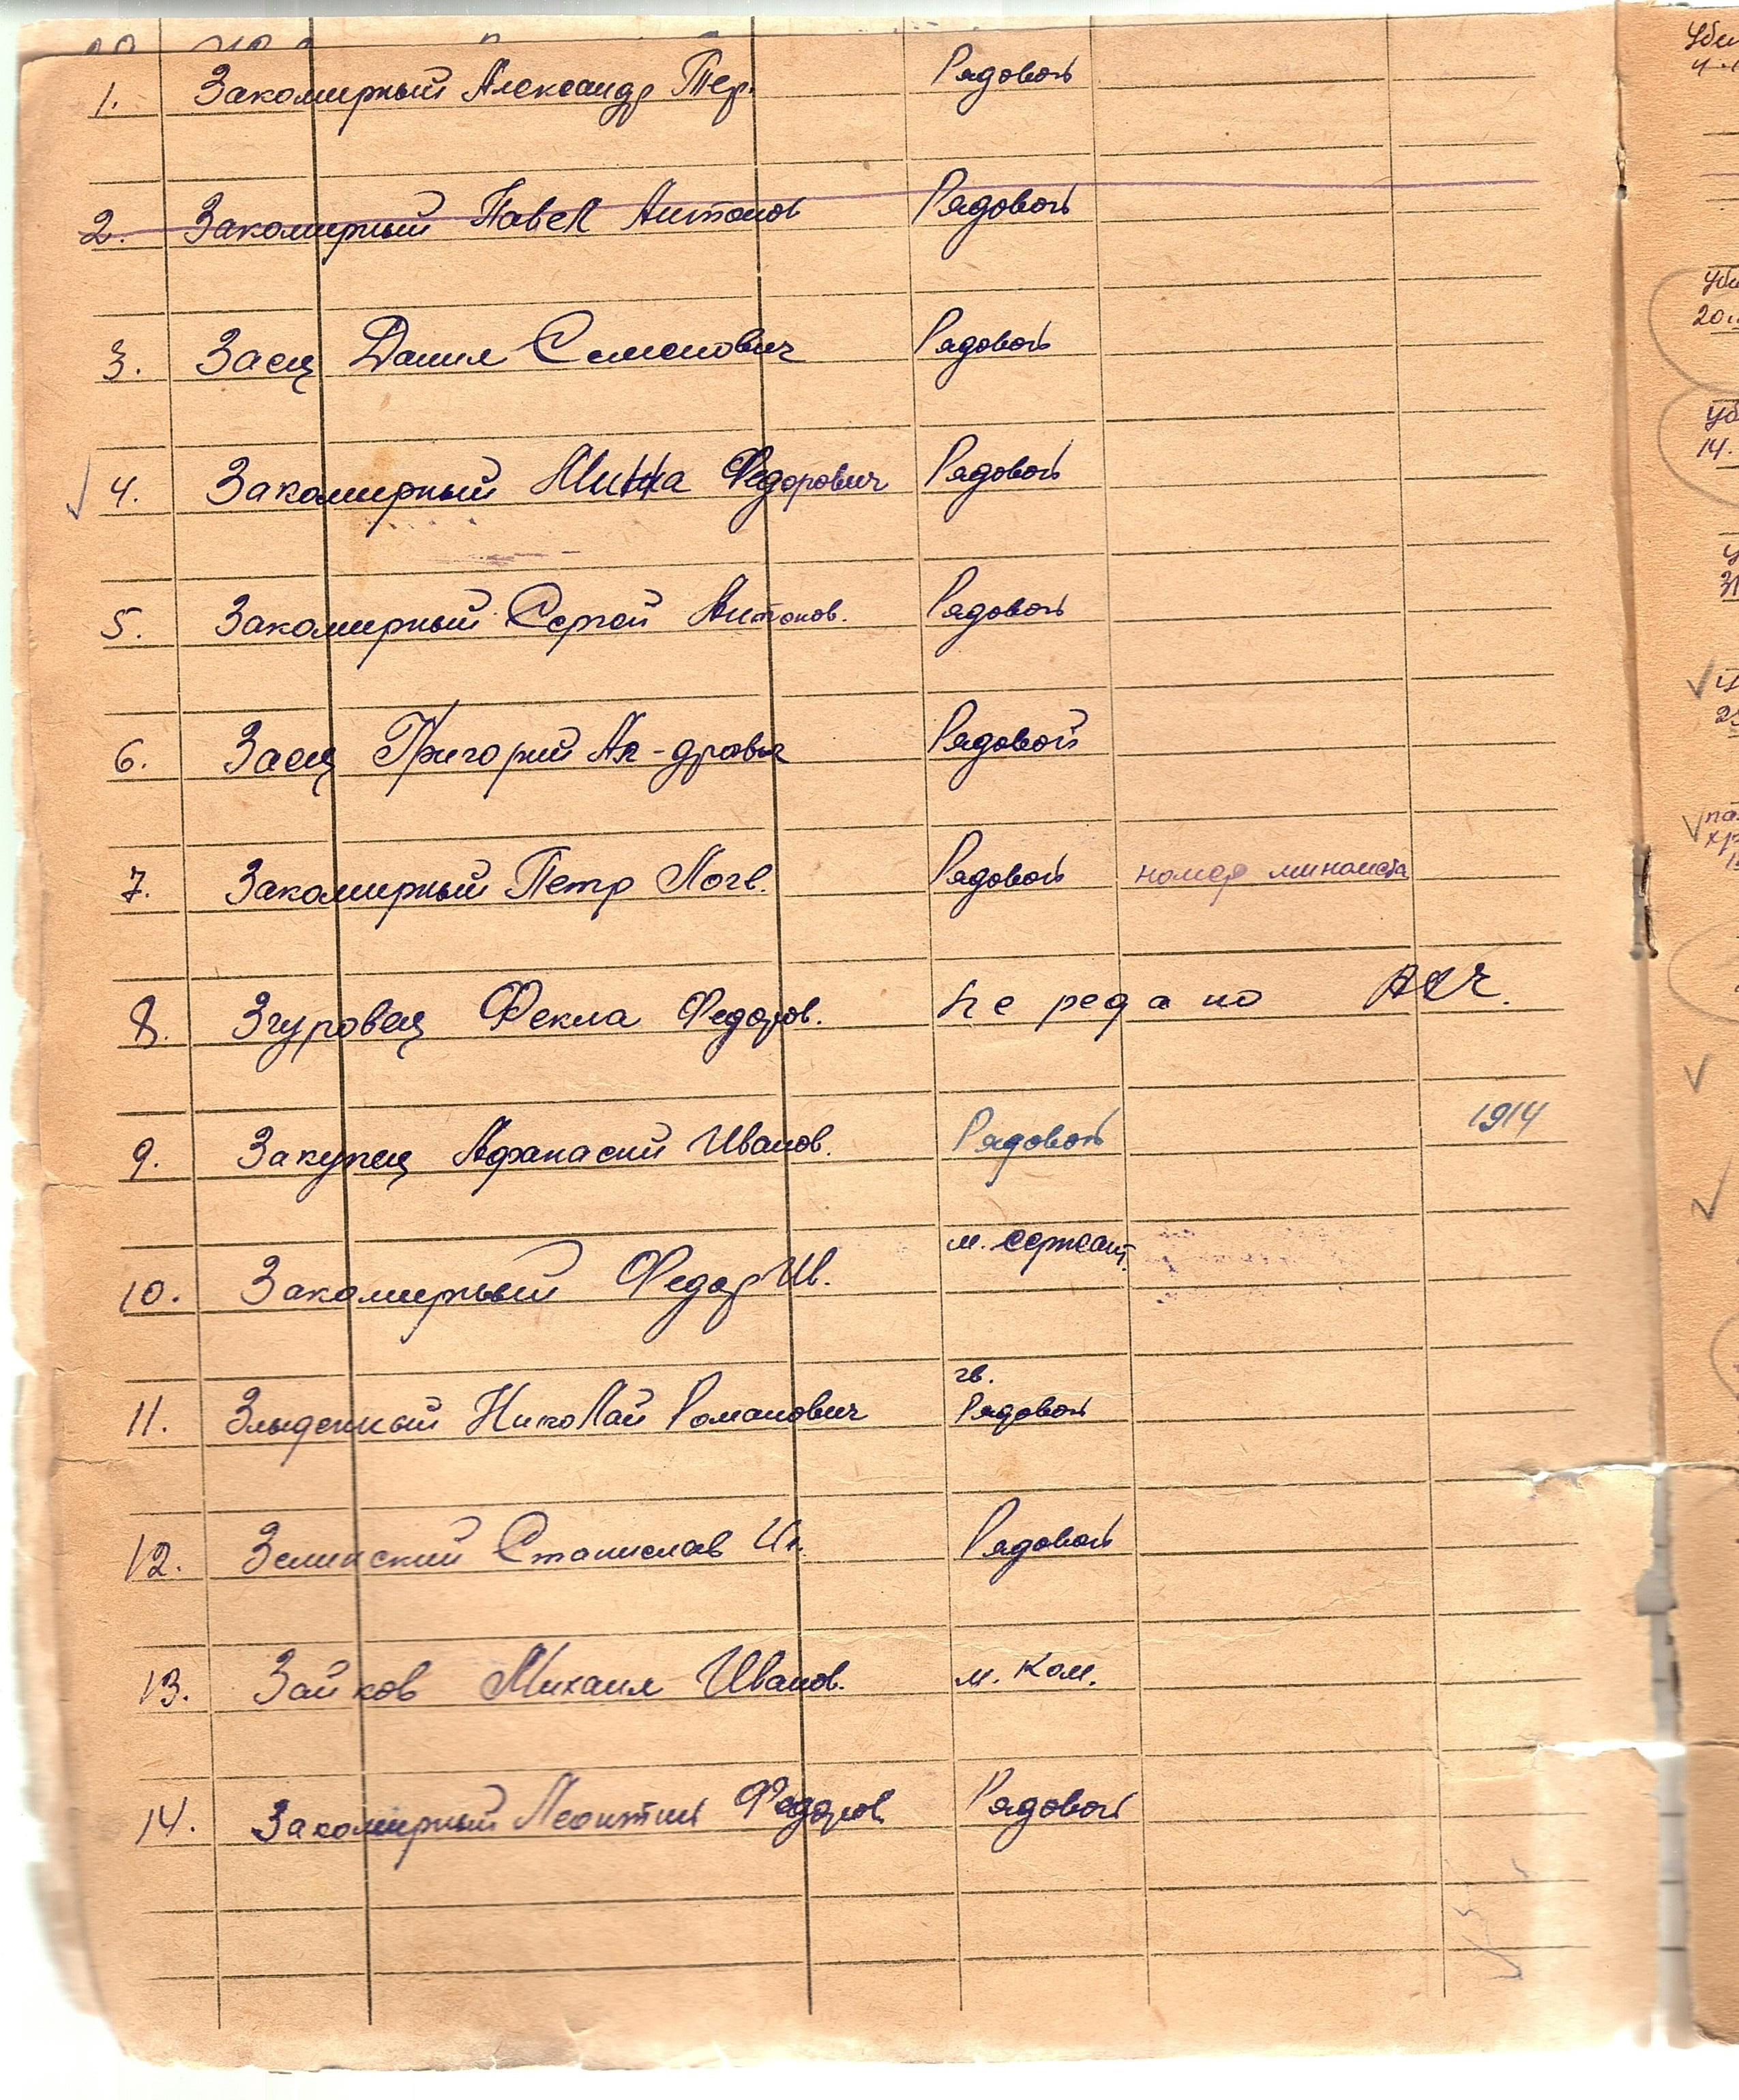 1. Закомирный Александр Тер. Рядовой
2. Закомирный Павел Антонов Рядовой
3. Заец Данил Семенович Рядовой
4. Закомирный Федорович Рядовой
5. Закомирный Сергей Антонов. Рядовой
6. Заец Григорий Рядовой
7. Закомирный Петр Логв. Рядовой номер миномета
8. Згуровец Фекла Федоров. передано
9. Закупец Афанасий Иванов. Рядовой 1914
10. Закомирный Федор Ив. м. сержант
гв.
11. Злыденный Николай Романович Рядовой
12. Зелинский Станислав Рядовой
13. Зайков Михаил Иванов. м. ком.
14. Закомирный Леонтий Федоров Рядовой